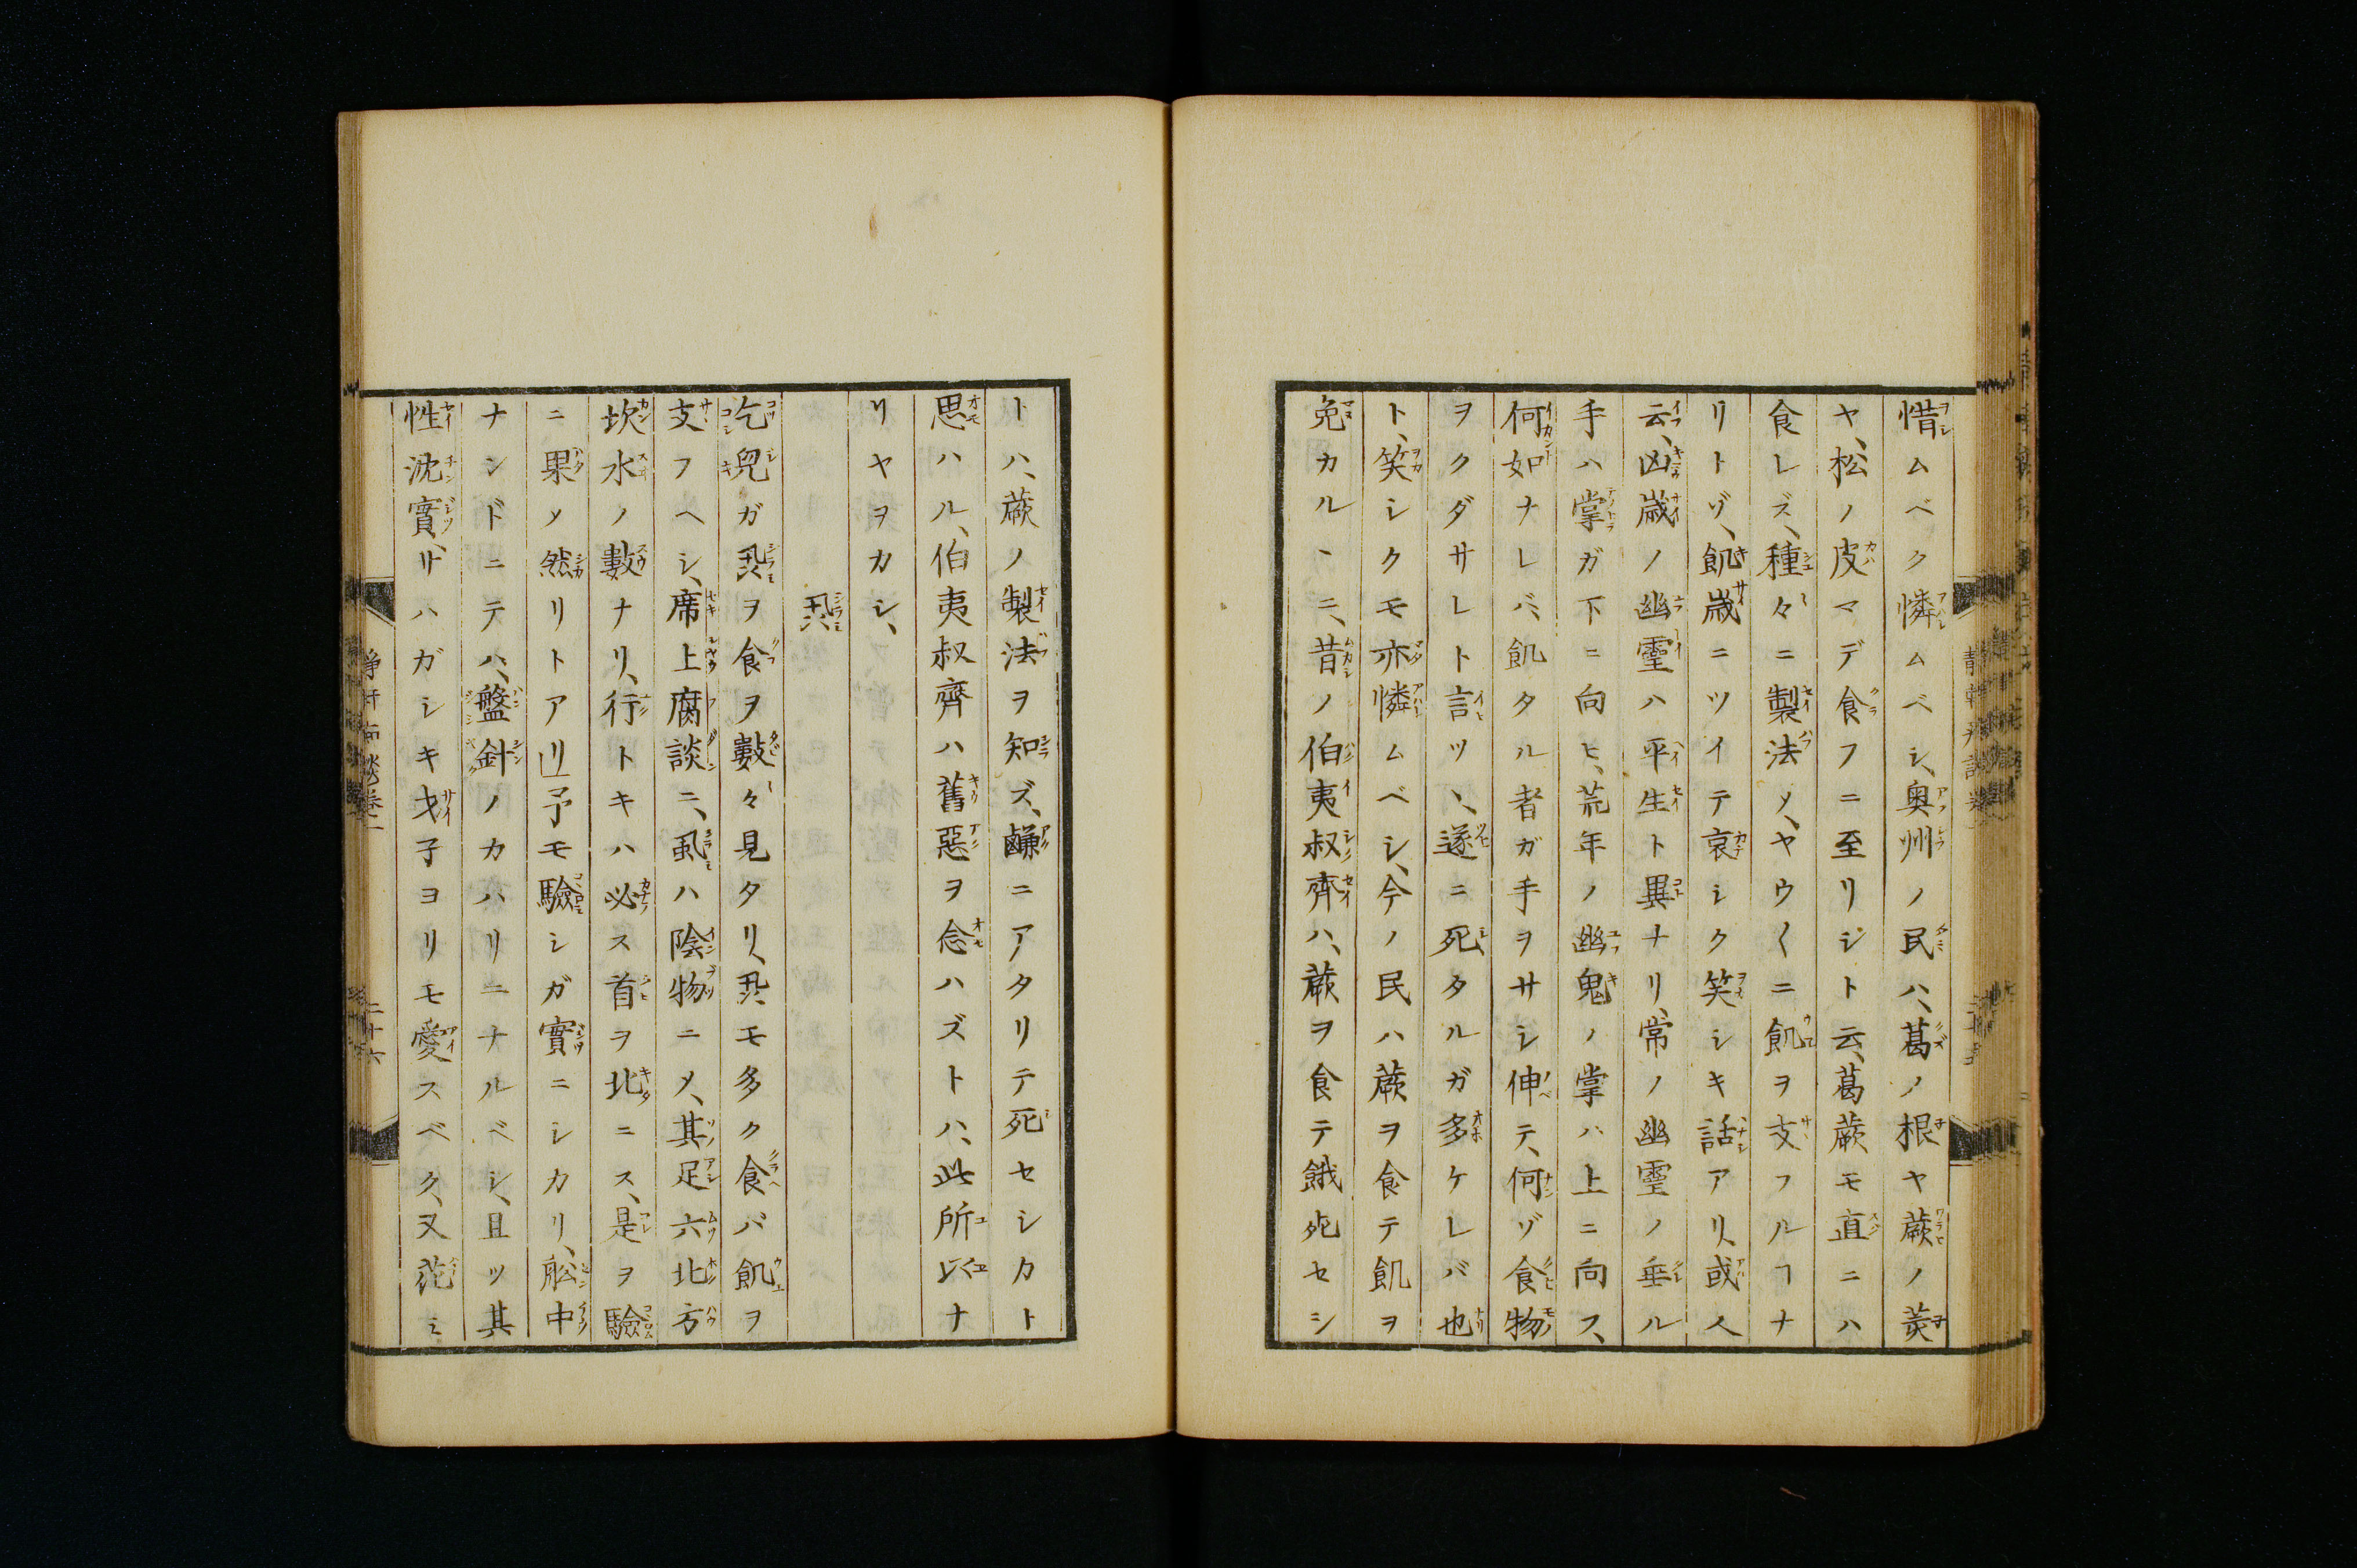 惜ムベク憐ムベシ、奥州ノ民ハ、葛ノ根ヤ蕨ノ莖
ヤ、松ノ皮マデ食フニ至リシト云、葛蕨モ直ニハ
食レズ、種々ニ製法〆、ヤウ〱ニ飢ヲ支フルヿナ
リトゾ、飢歳ニツイテ哀シク笑シキ話アリ、或人
云、凶歳ノ幽霊ハ平生ト異ナリ、常ノ幽霊ノ垂ル
手ハ掌ガ下ニ向ヒ、荒年ノ幽鬼ノ掌ハ上ニ向フ、
何如ナレバ、飢タル者ガ手ヲサシ伸テ、何ゾ食物
ヲクダサレト言ツヽ、遂ニ死タルガ多ケレバ也
ト、笑シクモ亦憐ムベシ、今ノ民ハ蕨ヲ食テ飢ヲ
免カルヽニ、昔ノ伯夷叔齊ハ、蕨ヲ食テ餓死セシ
トハ、蕨ノ製法ヲ知ズ、鹻ニアタリテ死セシカト
思ハル、伯夷叔齊ハ舊惡ヲ念ハズトハ、此所以ナ
リヤヲカシ、
蝨
乞兒ガ蝨ヲ食ヲ數々見タリ、蝨モ多ク食バ飢ヲ
支フヘシ、席上腐談ニ、虱ハ陰物ニ〆、其足六北方
坎水ノ數ナリ、行トキハ必ス首ヲ北ニス、是ヲ驗
ニ果〆然リトアリ予モ驗シガ實ニシカリ、舩中
ナンドニテハ、盤針ノカハリニナルベシ、且ツ其
性沈實、サハガシキ才子ヨリモ愛スベク、又花ミ
二十六